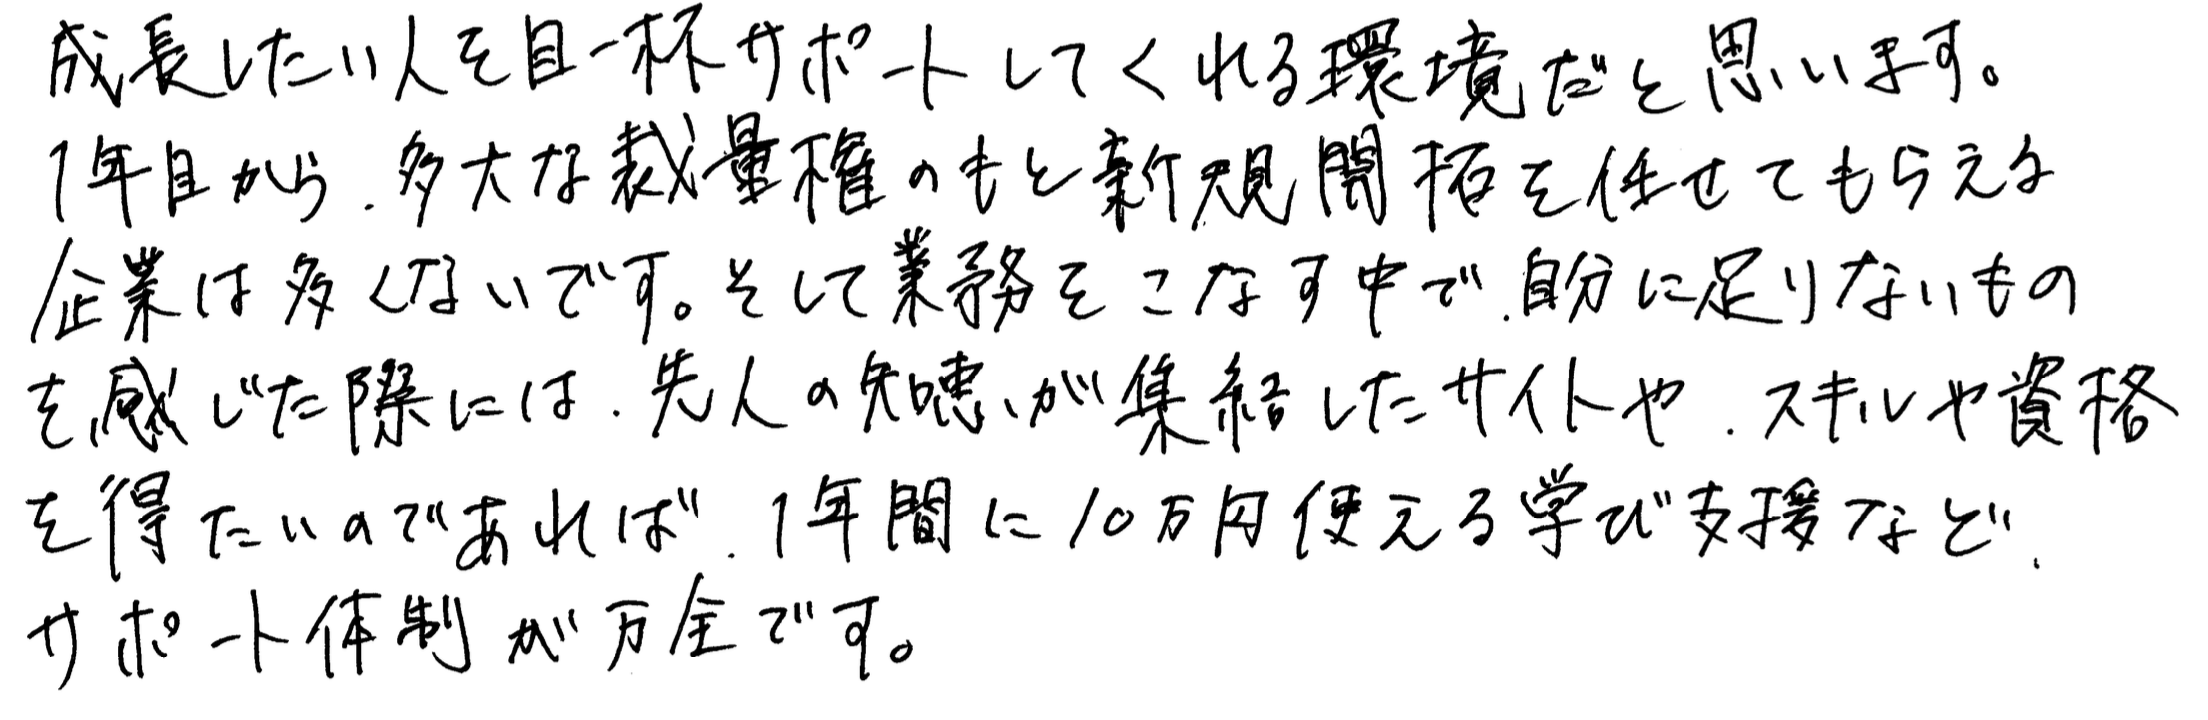 成長したい人を目一杯サポートしてくれる環境だと思います。
1年目から、多大な裁量権のもと新規開拓を任せてもらえる
企業は多くないです。そして業務をこなす中で、自分に足りないもの
を感じた際には、先人の知恵が集結したサイトや、スキルや資格
を得たいのであれば、1年間に10万円使える学び支援など、
サポート体制が万全です。